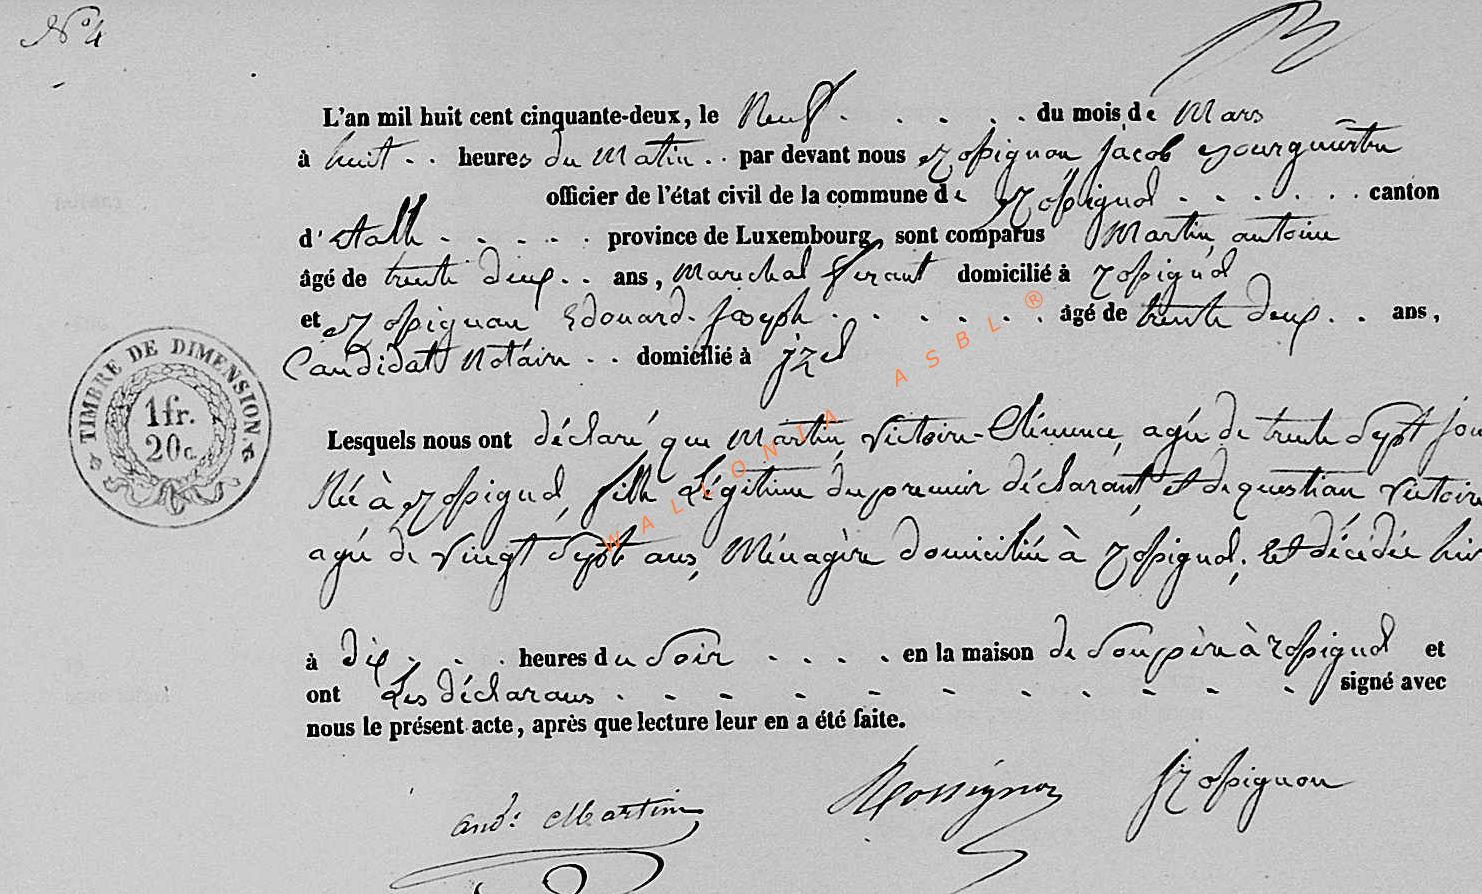 N° 4
L'an mil huit cent cinquante-deux, le Neuf . . . . . du mois de Mars
à huit . . heures du Matin . . par devant nous Rossignon Jacob Bourgmestre
officier de l'état civil de la commune de Rossignol . . . . . . canton
d'Etalle . . . . . province de Luxembourg, sont comparus Martin, antoine
âgé de trente deux . . ans, Marechal ferant domicilié à Rossignol
et Rossignon Edouard-Joseph . . . . . . âgé de trente deux . . ans,
Candidat Notaire . . domicilié à jzel
Lesquels nous ont déclaré que Martin, Victoire-Clémence, agée de trente Sept jou
Née à Rossignol, fille Légitime du premier déclarant et de question Victoire
agée de Vingt Sept ans, Ménagère domiciliée à Rossignol, Et décédée hier
à dix . . . heures du Soir . . . . en la maison de Son père à Rossignol et
ont Les déclarans . . . . . . . . . . signé avec
nous le présent acte, après que lecture leur en a été faite.
TIMBRE DE DIMENSION
1 fr.
20 c.
WALLONIA ASBL ®
And: Martin Rossignon J Rossignon